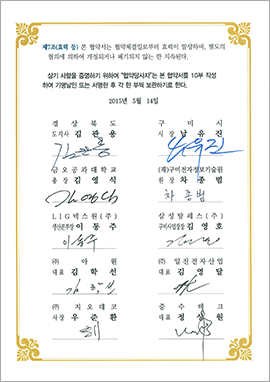 제7조(효력 등) 본 협약서는 협약체결일로부터 효력이 발생하여, 별도의
협의에 의하여 개정되거나 폐기되지 않는 한 지속된다.
상기 사항을 증명하기 위하여 "협약당사자"는 본 협약서를 10부 작성
하여 기명날인 또는 서명한 후 각 한 부씩 보관하기로 한다.
2015년 5월 14일
경상북도
도지사 김관용
구미시
시장 남유진
금오공과대학교
총장 김영식
(재)구미전자정보기술원
원장 차종범
차종범
LIG넥스원(주)
생산본부장 이동주
이동주
삼성탈레스(주)
구미사업장장 김영호
㈜아원
대표 김학선
㈜일진전자산업
대표 김영달
㈜지오테코
사장 우준환
대표